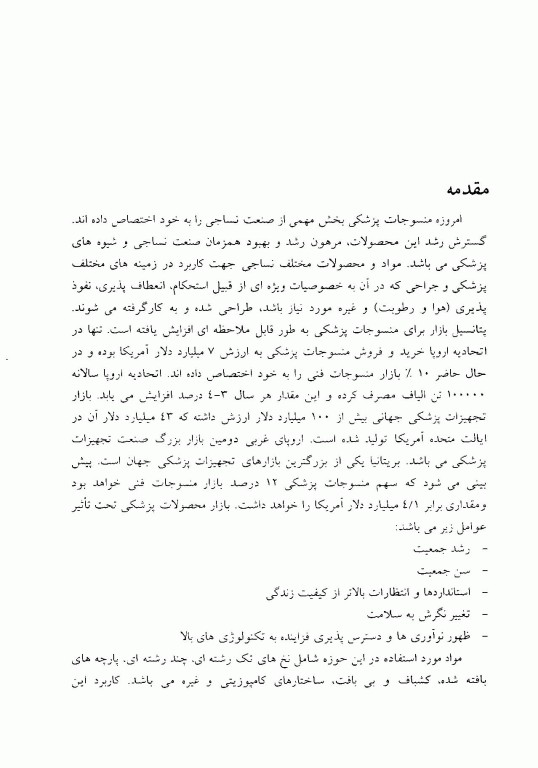 مقدمه
امروزه منسوجات پزشکی بخش مهمی از صنعت نساجی را به خود اختصاص داده اند.
گسترش رشد این محصولات، مرهون رشد و بهبود همزمان صنعت نساجی و شیوه های
پزشکی می باشد. مواد و محصولات مختلف نساجی جهت کاربرد در زمینه های مختلف
پزشکی و جراحی که در آن به خصوصیات ویژه ای از قبیل استحکام، انعطاف پذیری، نفوذ
پذیری (هوا و رطوبت) و غیره مورد نیاز باشد، طراحی شده و به کارگرفته می شوند.
پتانسیل بازار برای منسوجات پزشکی به طور قابل ملاحظه ای افزایش یافته است. تنها در
اتحادیه اروپا خرید و فروش منسوجات پزشکی به ارزش ۷ میلیارد دلار آمریکا بوده و در
حال حاضر ۱۰ ٪ بازار منسوجات فنی را به خود اختصاص داده اند. اتحادیه اروپا سالانه
۱۰۰۰۰۰ تن الیاف مصرف کرده و این مقدار هر سال ۳-٤ درصد افزایش می یابد. بازار
تجهیزات پزشکی جهانی بیش از ۱۰۰ میلیارد دلار ارزش داشته که ٤۳ میلیارد دلار آن در
ایالت متحده آمریکا تولید شده است. اروپای غربی دومین بازار بزرگ صنعت تجهیزات
پزشکی می باشد. بریتانیا یکی از بزرگترین بازارهای تجهیزات پزشکی جهان است. پیش
بینی می شود که سهم منسوجات پزشکی ۱۲ درصد بازار منسوجات فنی خواهد بود
ومقداری برابر ٤/۱ میلیارد دلار آمریکا را خواهد داشت. بازار محصولات پزشکی تحت تأثیر
عوامل زیر می باشد:
- رشد جمعیت
- سن جمعیت
- استانداردها و انتظارات بالاتر از کیفیت زندگی
- تغییر نگرش به سلامت
- ظهور نوآوری ها و دسترس پذیری فزاینده به تکنولوژی های بالا
مواد مورد استفاده در این حوزه شامل نخ های تک رشته ای، چند رشته ای، پارچه های
بافته شده، کشباف و بی بافت، ساختارهای کامپوزیتی و غیره می باشد. کاربرد این